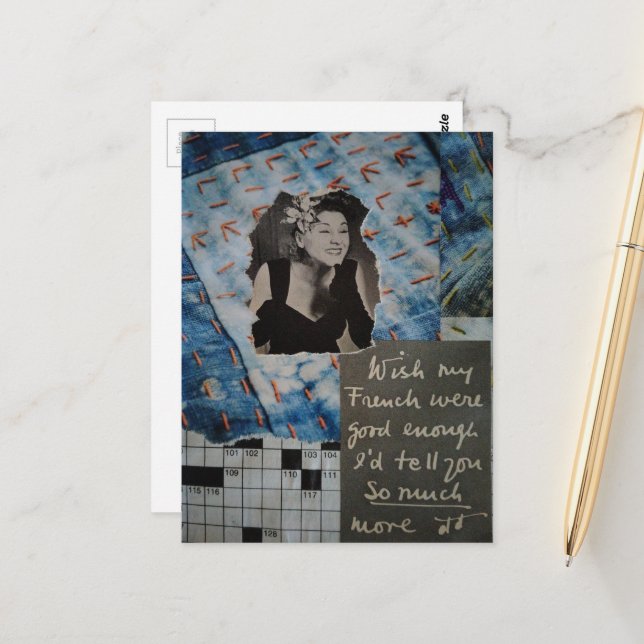 zzle
101 102 103 104
109 110 111
115 116 117
128
Wish my
French were
good enough
I'd tell you
So much
more